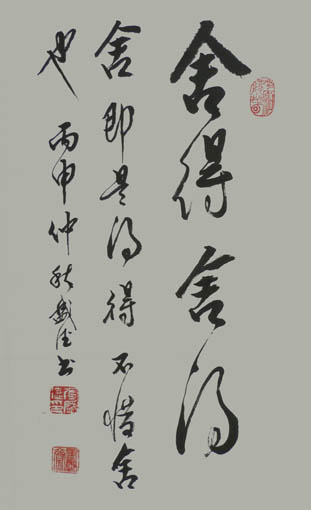 舍得舍得
舍即是得得不惜舍
也 丙申仲秋盛德书